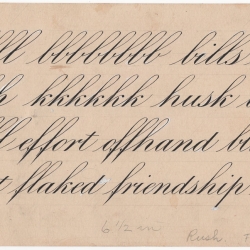 bbbbbbbb bills
kkkkkk husk
effort offhand
flaked friendship
6 1/2 in Rush